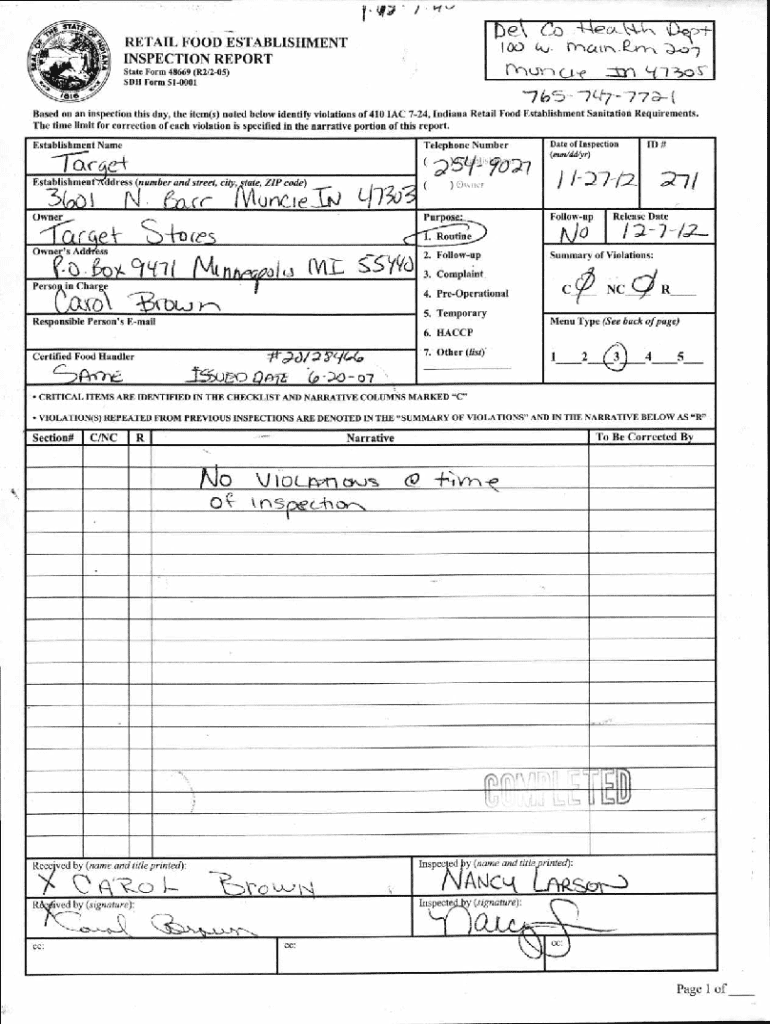 Del Co Health Dept
100 W. Main. Rm 207
Muncie IN 47305
765-747-7721
RETAIL FOOD ESTABLISHMENT
INSPECTION REPORT
State Form 48669 (R2/2-05)
SDH Form 51-0001
SEAL OF THE STATE OF INDIANA
1816
Based on an inspection this day, the item(s) noted below identify violations of 410 IAC 7-24, Indiana Retail Food Establishment Sanitation Requirements.
The time limit for correction of each violation is specified in the narrative portion of this report.
Establishment Name
Target
Telephone Number
254-9027
( ) Owner
Date of Inspection
(mm/dd/yr)
11-27-12
ID #
271
Establishment Address (number and street, city, state, ZIP code)
3601 N. Barr Muncie IN 47303
Owner
Target Stores
Purpose:
1. Routine
2. Follow-up
3. Complaint
4. Pre-Operational
5. Temporary
6. HACCP
7. Other (list)
Follow-up
No
Release Date
12-7-12
Owner's Address
P.O. Box 9471 Minneapolis MI 55440
Summary of Violations:
C Ø NC Ø R
Person in Charge
Carol Brown
Responsible Person's E-mail
Menu Type (See back of page)
1 2 3 4 5
Certified Food Handler
#20128466
SAME ISSUED DATE 6-20-07
• CRITICAL ITEMS ARE IDENTIFIED IN THE CHECKLIST AND NARRATIVE COLUMNS MARKED "C"
• VIOLATION(S) REPEATED FROM PREVIOUS INSPECTIONS ARE DENOTED IN THE "SUMMARY OF VIOLATIONS" AND IN THE NARRATIVE BELOW AS "R"
Section# C/NC R Narrative To Be Corrected By
No Violations @ time
of inspection
COMPLETED
Received by (name and title printed):
X CAROL BROWN
Inspected by (name and title printed):
NANCY LARSON
Received by (signature):
X Carol Brown
Inspected by (signature):
cc: cc: cc:
Page 1 of